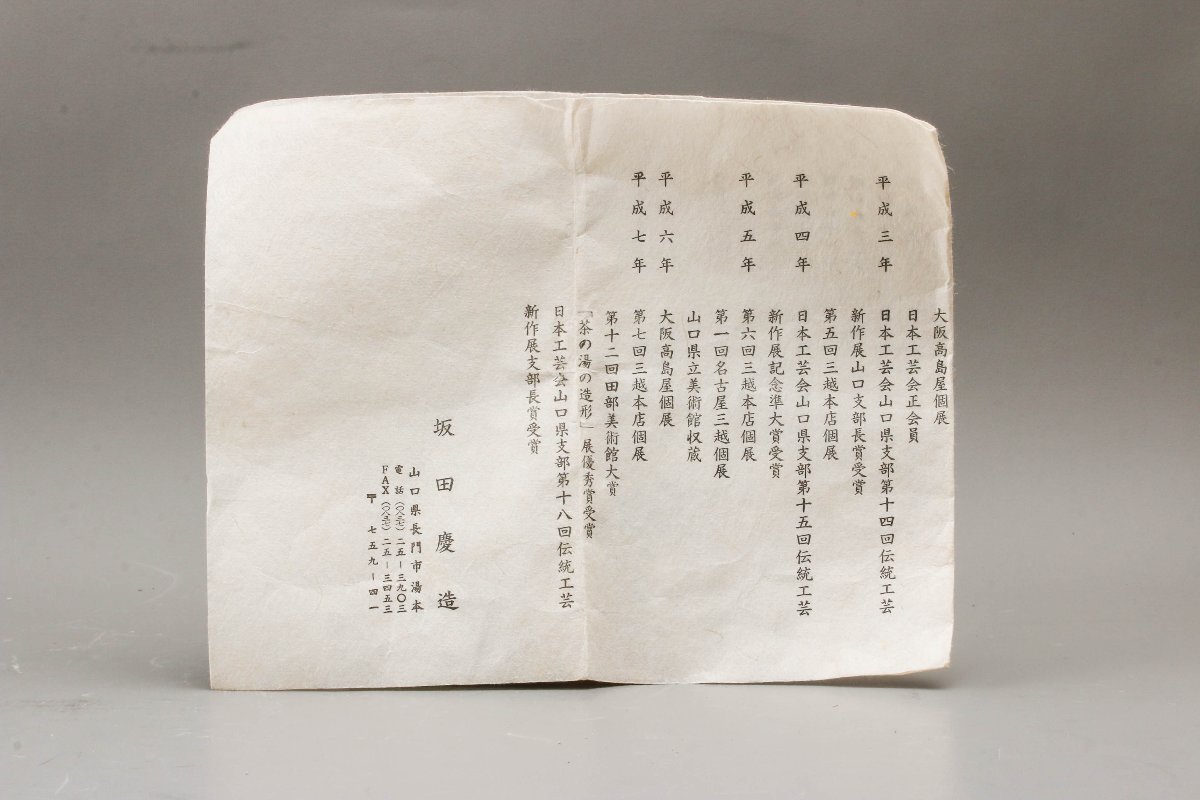 大阪高島屋個展
日本工芸会正会員
平成三年 日本工芸会山口県支部第十四回伝統工芸
新作展山口支部長賞受賞
第五回三越本店個展
平成四年 日本工芸会山口県支部第十五回伝統工芸
新作展記念準大賞受賞
平成五年 第六回三越本店個展
第一回名古屋三越個展
山口県立美術館収蔵
平成六年 大阪高島屋個展
平成七年 第七回三越本店個展
第十二回田部美術館大賞
「茶の湯の造形」展優秀賞受賞
日本工芸会山口県支部第十八回伝統工芸
新作展支部長賞受賞
坂田慶造
山口県長門市湯本
電話(〇八三七)二五-三九〇三
FAX(〇八三七)二五-三四五三
〒七五九-四一